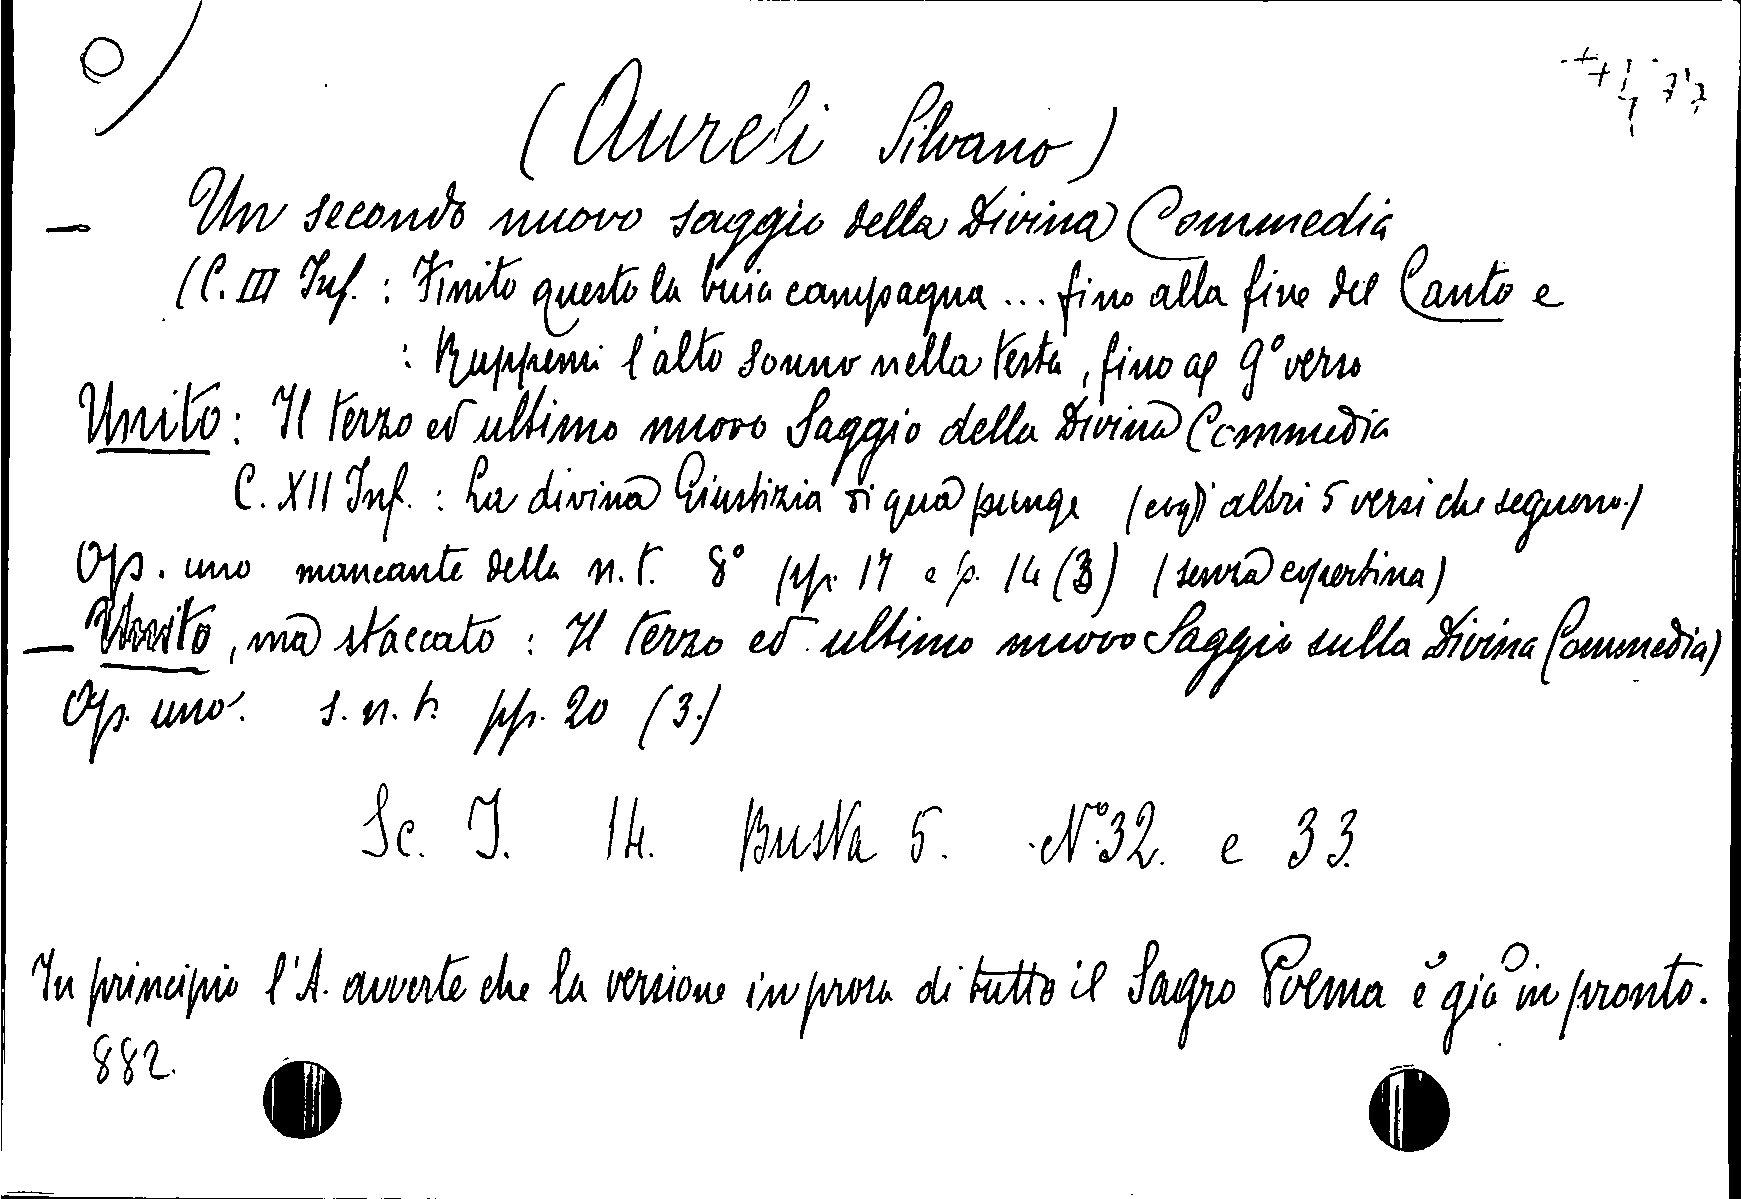 (Aureli Silvano)
— Un secondo nuovo saggio della Divina Commedia
(C. III Inf. : Finito questo la buia campagna ... fino alla fine del Canto e
: Ruppemi l'alto sonno nella testa, fino al 9° verso
Unito : Il terzo ed ultimo nuovo Saggio della Divina Commedia
C. XII Inf. : La divina Giustizia di qua punge (cogli altri 5 versi che seguono.)
Op. uno mancante della n. t. 8° pp. 17 e p. 14 (3) (senza copertina)
— Unito, ma staccato : Il terzo ed ultimo nuovo Saggio sulla Divina Commedia)
Op. uno. s. n. t. pp. 20 (3.)
Sc. I. 14. Busta 5. N.° 32. e 33.
In principio l'A. avverte che la versione in prosa di tutto il Sagro Poema è già in pronto.
882.